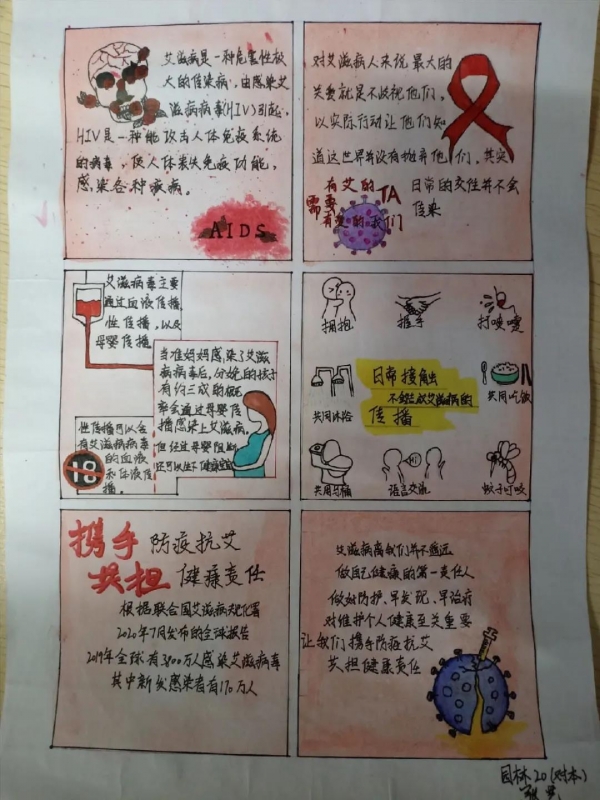 艾滋病是一种危害性极
大的传染病,由感染艾
滋病病毒(HIV)引起,
HIV是一种能攻击人体免疫系统
的病毒,使人体丧失免疫功能,
感染各种疾病。
AIDS
对艾滋病人来说最大的
关爱就是不歧视他们,
以实际行动让他们知
道这世界并没有抛弃他们,其实
日常的交往并不会
传染
有艾的TA
需要
有爱的我们
艾滋病毒主要
通过血液传播,
性传播,以及
母婴传播
当准妈妈感染了艾滋
病病毒后,分娩的孩子
有约三成的概
率会通过母婴传
播感染上艾滋病,
但经过母婴阻断
还可以生下健康宝宝
性传播可以含
有艾滋病病毒
的血液
和体液传
播。
18
拥抱
握手
打喷嚏
共用沐浴
日常接触
不会造成艾滋病的
传播
共同吃饭
共用马桶
语言交流
蚊子叮咬
携手防疫抗艾
共担健康责任
根据联合国艾滋病规划署
2020年7月发布的全球报告
2019年全球有3800万人感染艾滋病毒
其中新发感染者有170万人
艾滋病离我们并不遥远
做自己健康的第一责任人
做好防护、早发现、早治疗
对维护个人健康至关重要
让我们携手防疫抗艾
共担健康责任
园林20(对本)